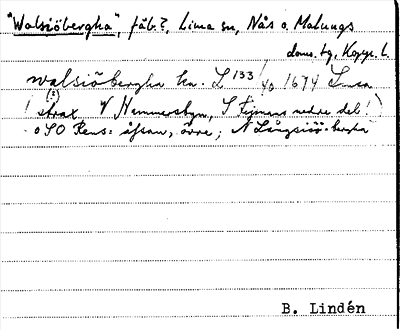 "Walsiöbergha", fäb.?, Lima sn, Nås o. Malungs
doms. tg, Kopp. l.
walsiöbergha ka. L 133/40 1674 Lima
(?)
(strax V Hammersbyn, S Tijmans nedre del!)
o SO Rens: åssan, övre; N Långsiöbergha
B. Lindén